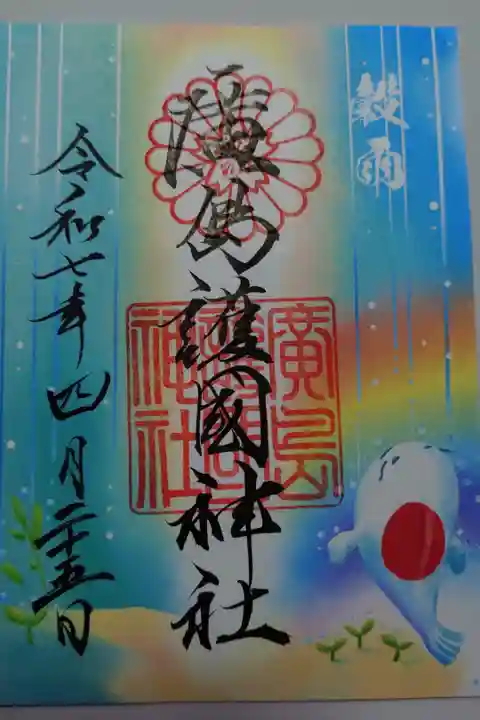 穀雨
廣島護國神社
廣島護國神社
令和七年四月二十五日